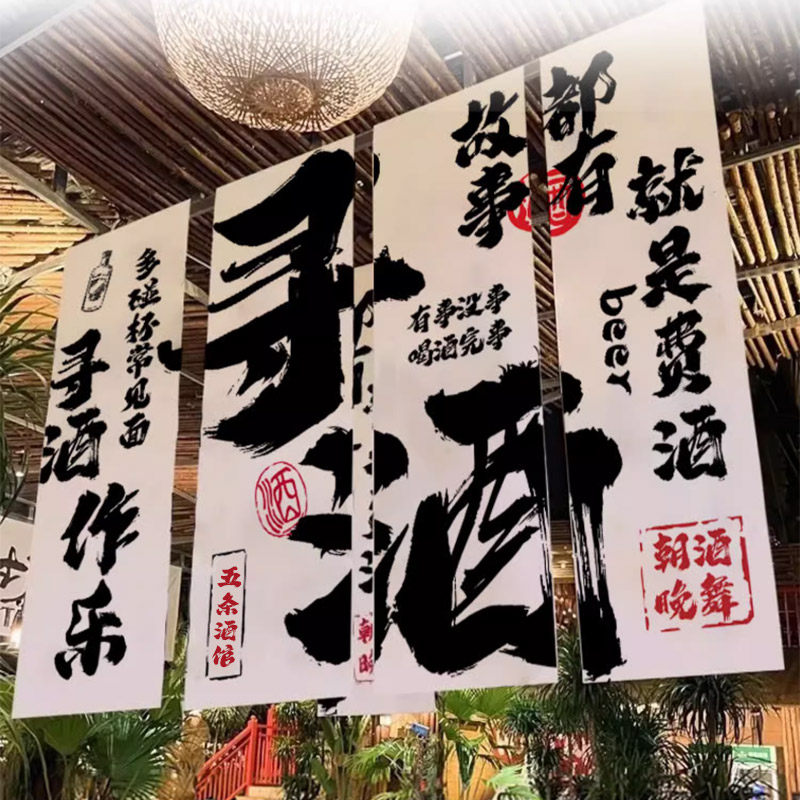 多碰杯常见面
寻酒作乐
寻酒
酒
五条酒馆
故事
都有
就是费酒
beer
有事没事
喝酒完事
朝酒
晚舞